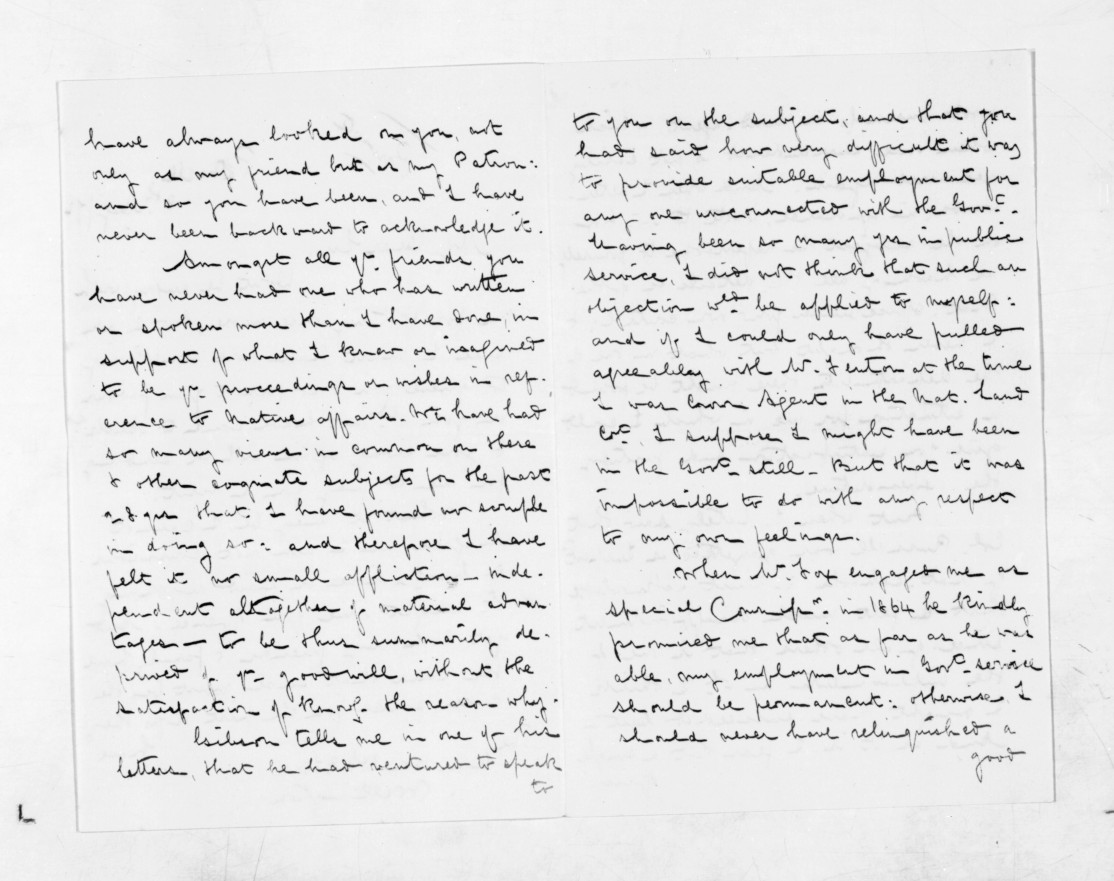 have always looked on you, not
only as my friend but as my Patron:
and so you have been, and I have
never been backward to acknowledge it.
Amongst all yr. friends you
have never had one who has written
or spoken more than I have done, in
support of what I knew or imagined
to be yr. proceedings or wishes in ref-
erence to Native affairs. We have had
so many views in common on these
& other cognate subjects for the past
28 yrs that I have found no scruple
in doing so: and therefore I have
felt it no small affliction — inde-
pendent altogether of material advan
tages — to be thus summarily de-
prived of yr. goodwill, without the
satisfaction of knowg. the reason why.
Gibson tells me in one of his
letters, that he had ventured to speak
to
to you on the subject, and that you
had said how very difficult it was
to provide suitable employment for
any one unconnected with the Govt.
Having been so many yrs in public
service I did not think that such an
objection wld. be applied to myself:
and if I could only have pulled
agreeably with Mr. Fenton at the time
I was Crown Agent in the Nat. Land
Ct., I suppose I might have been
in the Govt. still — But that it was
impossible to do with any respect
to my own feelings.
When Mr. Fox engaged me as
special Commissr. in 1864 he kindly
promised me that as far as he was
able, my employment in Govt. service
should be permanent: otherwise I
should never have relinquished a
good